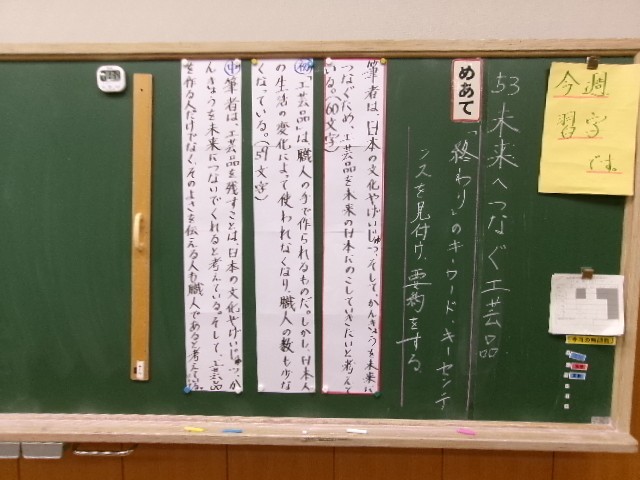 今週
習字
です。
53 未来へつなぐ工芸品
めあて
「終わり」のキーワード・キーセンテ
ンスを見付け、要約をする
筆者は、日本の文化やげいじゅつ、そしてかんきょうを未来に
つなぐため、工芸品を未来の日本にのこしていきたいと考えて
いる。(60文字)
初 「工芸品」は、職人の手で作られるものだ。しかし、日本人
の生活の変化によって使われなくなり、職人の数も少な
くなっている。(51文字)
中 筆者は、工芸品を残すことは、日本の文化やげいじゅつ、か
んきょうを未来につないでくれると考えている。そして、工芸品
を作る人だけでなく、そのよさを伝える人も職人であると考えている。